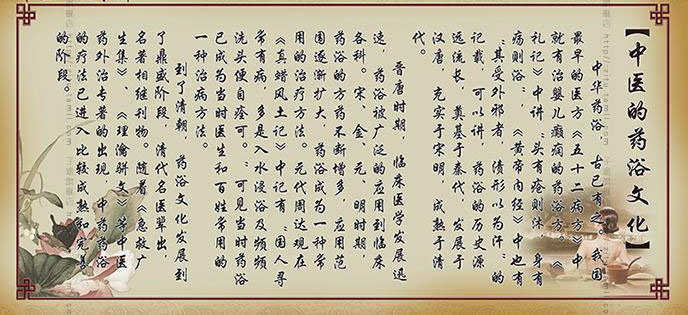 【中医的药浴文化】
中华药浴，古已有之。我国
最早的医方《五十二病方》中
就有治婴儿癫痫的药浴方。《
礼记》中讲“头有疮则沐，身有
疡则浴”，《黄帝内经》中也有
“其受外邪者，渍形以为汗”的
记载，可以讲，药浴的历史源
远流长，奠基于秦代，发展于
汉唐，充实于宋明，成熟于清
代。
晋唐时期，临床医学发展迅
速，药浴被广泛的应用到临床
各科。宋、金、元、明时期，
药浴的方药不断增多，应用范
围逐渐扩大，药浴成为一种常
用的治疗方法。元代周达现在
《真蜡风土记》中记有：“国人寻
常有病，多是入水浸浴及频频
洗头便自痊可。”可见当时药浴
已成为当时医生和百姓常用的
一种治病方法。
到了清朝，药浴文化发展到
了鼎盛阶段，清代名医辈出，
名著相继刊物。随着《急救广
生集》、《理瀹骈文》等中医
药外治专著的出现，中药药浴
的疗法已进入比较成熟和完善
的阶段。